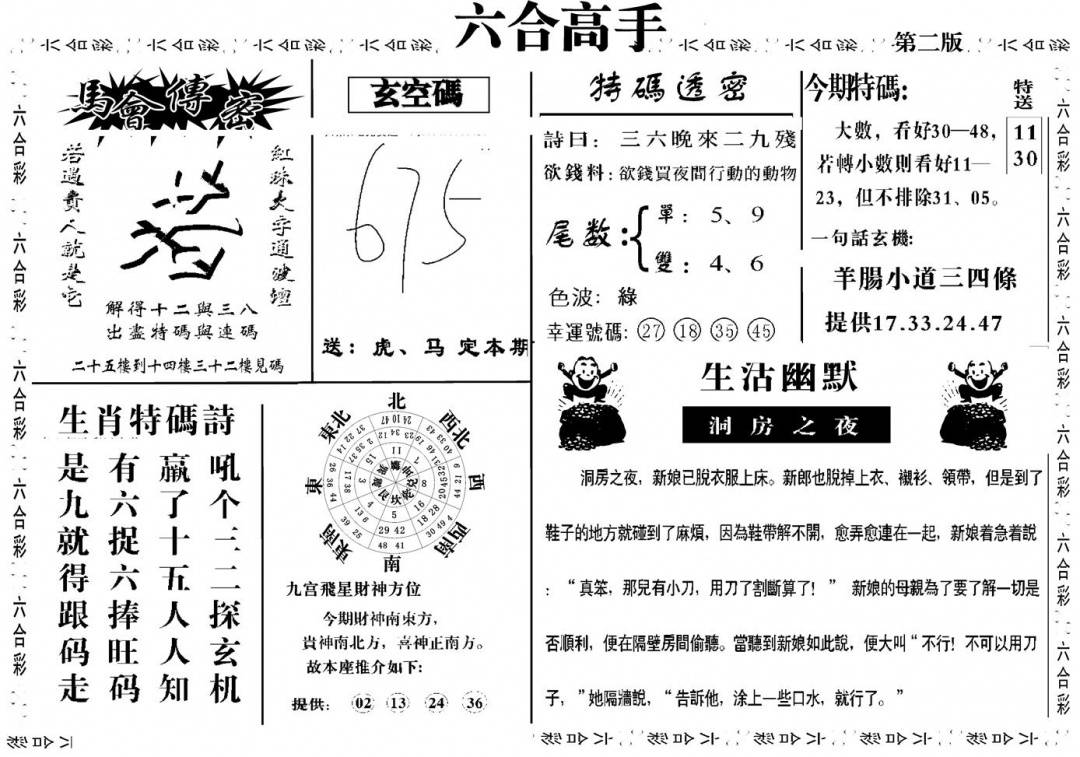 六合高手
第二版
馬會傳密
若遇貴人就是它
紅珠大字通波壇
解得十二與三八
出盡特碼與連碼
二十五樓到十四樓三十二樓見碼
玄空碼
675
送：虎、马 定本期
特碼透密
詩曰：三六晚來二九殘
欲錢料：欲錢買夜間行動的動物
尾数：
單：5、9
雙：4、6
色波：綠
幸運號碼：27 18 35 45
今期特碼:
大數，看好30—48，
若轉小數則看好11—
23，但不排除31、05。
特送
11
30
一句話玄機:
羊腸小道三四條
提供17.33.24.47
生肖特碼詩
吼个三二探玄机
赢了十五人人知
有六捉六捧旺码
是九就得跟码走
北
西北
西
西南
南
東南
東
東北
九宫飛星財神方位
今期財神南東方，
貴神南北方，喜神正南方。
故本座推介如下:
提供: 02 13 24 36
生活幽默
洞房之夜
洞房之夜，新娘已脫衣服上床。新郎也脫掉上衣、襯衫、領帶，但是到了
鞋子的地方就碰到了麻煩，因為鞋帶解不開，愈弄愈連在一起，新娘着急着說
：“真笨，那兒有小刀，用刀了割斷算了！” 新娘的母親為了要了解一切是
否順利，便在隔壁房間偷聽。當聽到新娘如此說，便大叫“不行！不可以用刀
子，”她隔牆說，“告訴他，涂上一些口水，就行了。”
六合彩